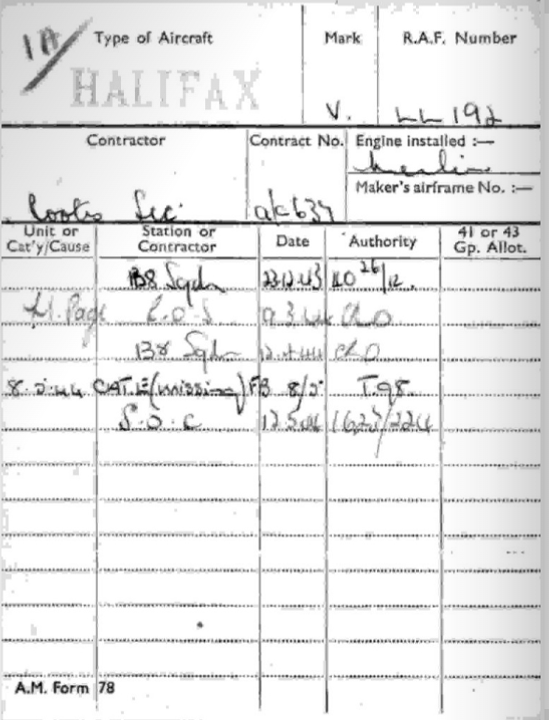 1A
Type of Aircraft Mark R.A.F. Number
HALIFAX
V. LL 192
Contractor Contract No. Engine installed :—
Merlin
Maker's airframe No. :—
Rootes Sec a/c 637
Unit or Cat'y/Cause Station or Contractor Date Authority 41 or 43 Gp. Allot.
138 Sqdn 23.12.43 26/12.
H. Page R.O.S 9.3.44
138 Sqdn 12.4.44
8.5.44 CAT.E(missing)FB 8/5 T.98.
S.O.C 12.5.44
A.M. Form 78